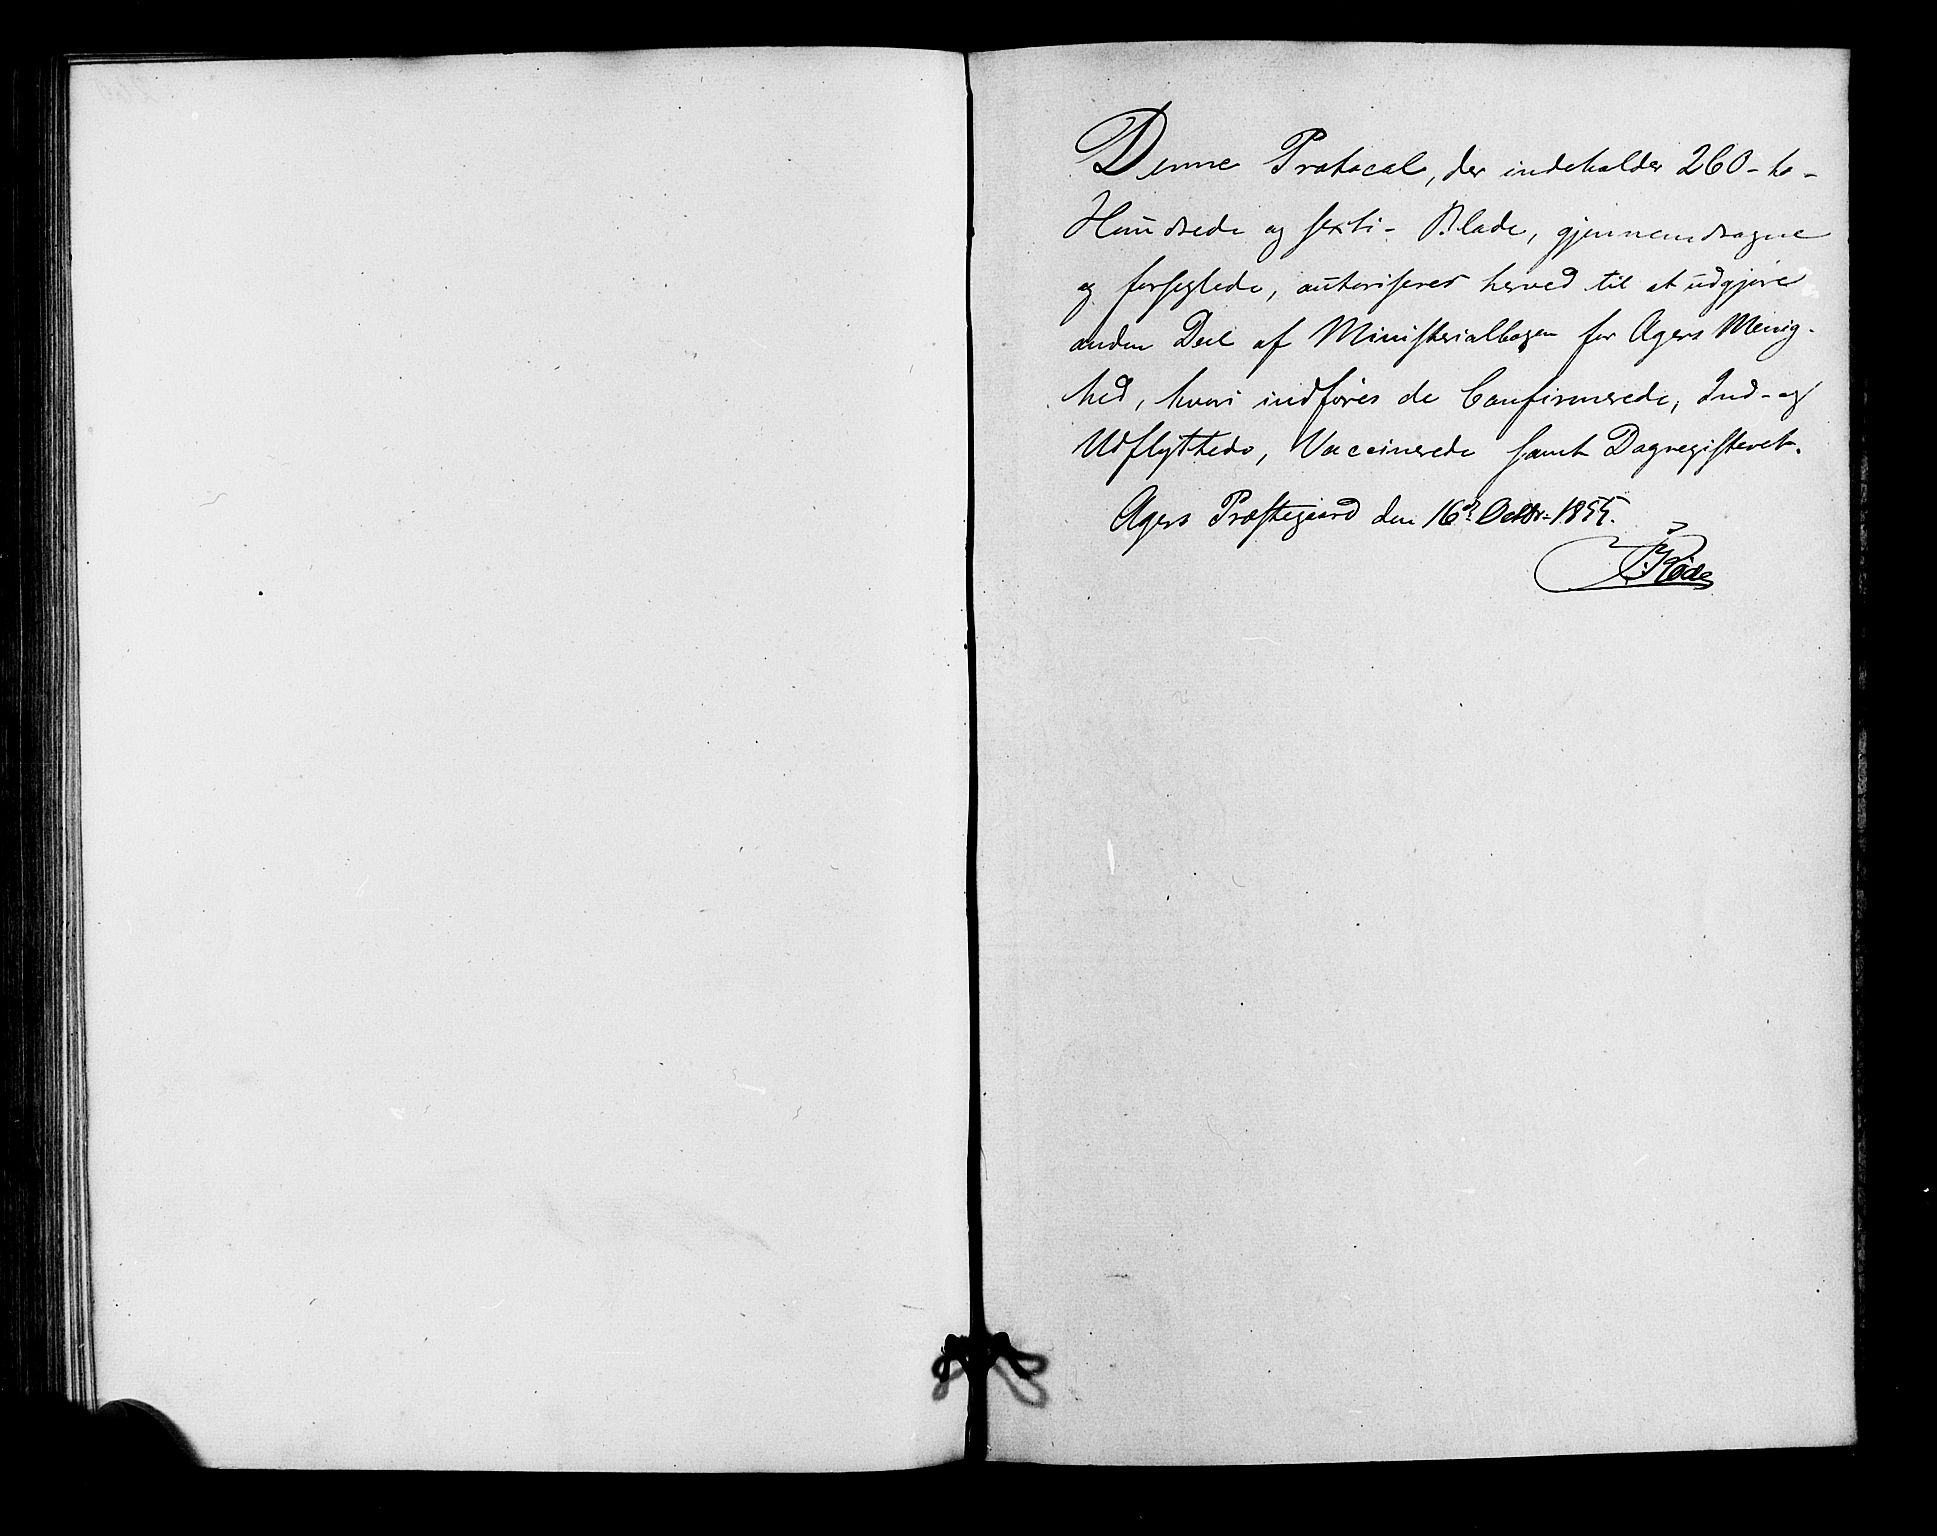 Denne Protocol, der indeholder 260 - to -
Hundrede og sexti - Blade, gjennemdragne
og forseglede, autoriseres herved til at udgjøre
anden Deel af Ministerialbogen for Agers Menig-
hed, hvori indføres de Confirmerede, Ind- og
Udflyttede, Vaccinerede samt Dagregisteret.
Agers Præstegaard den 16d Octbr. 1855.